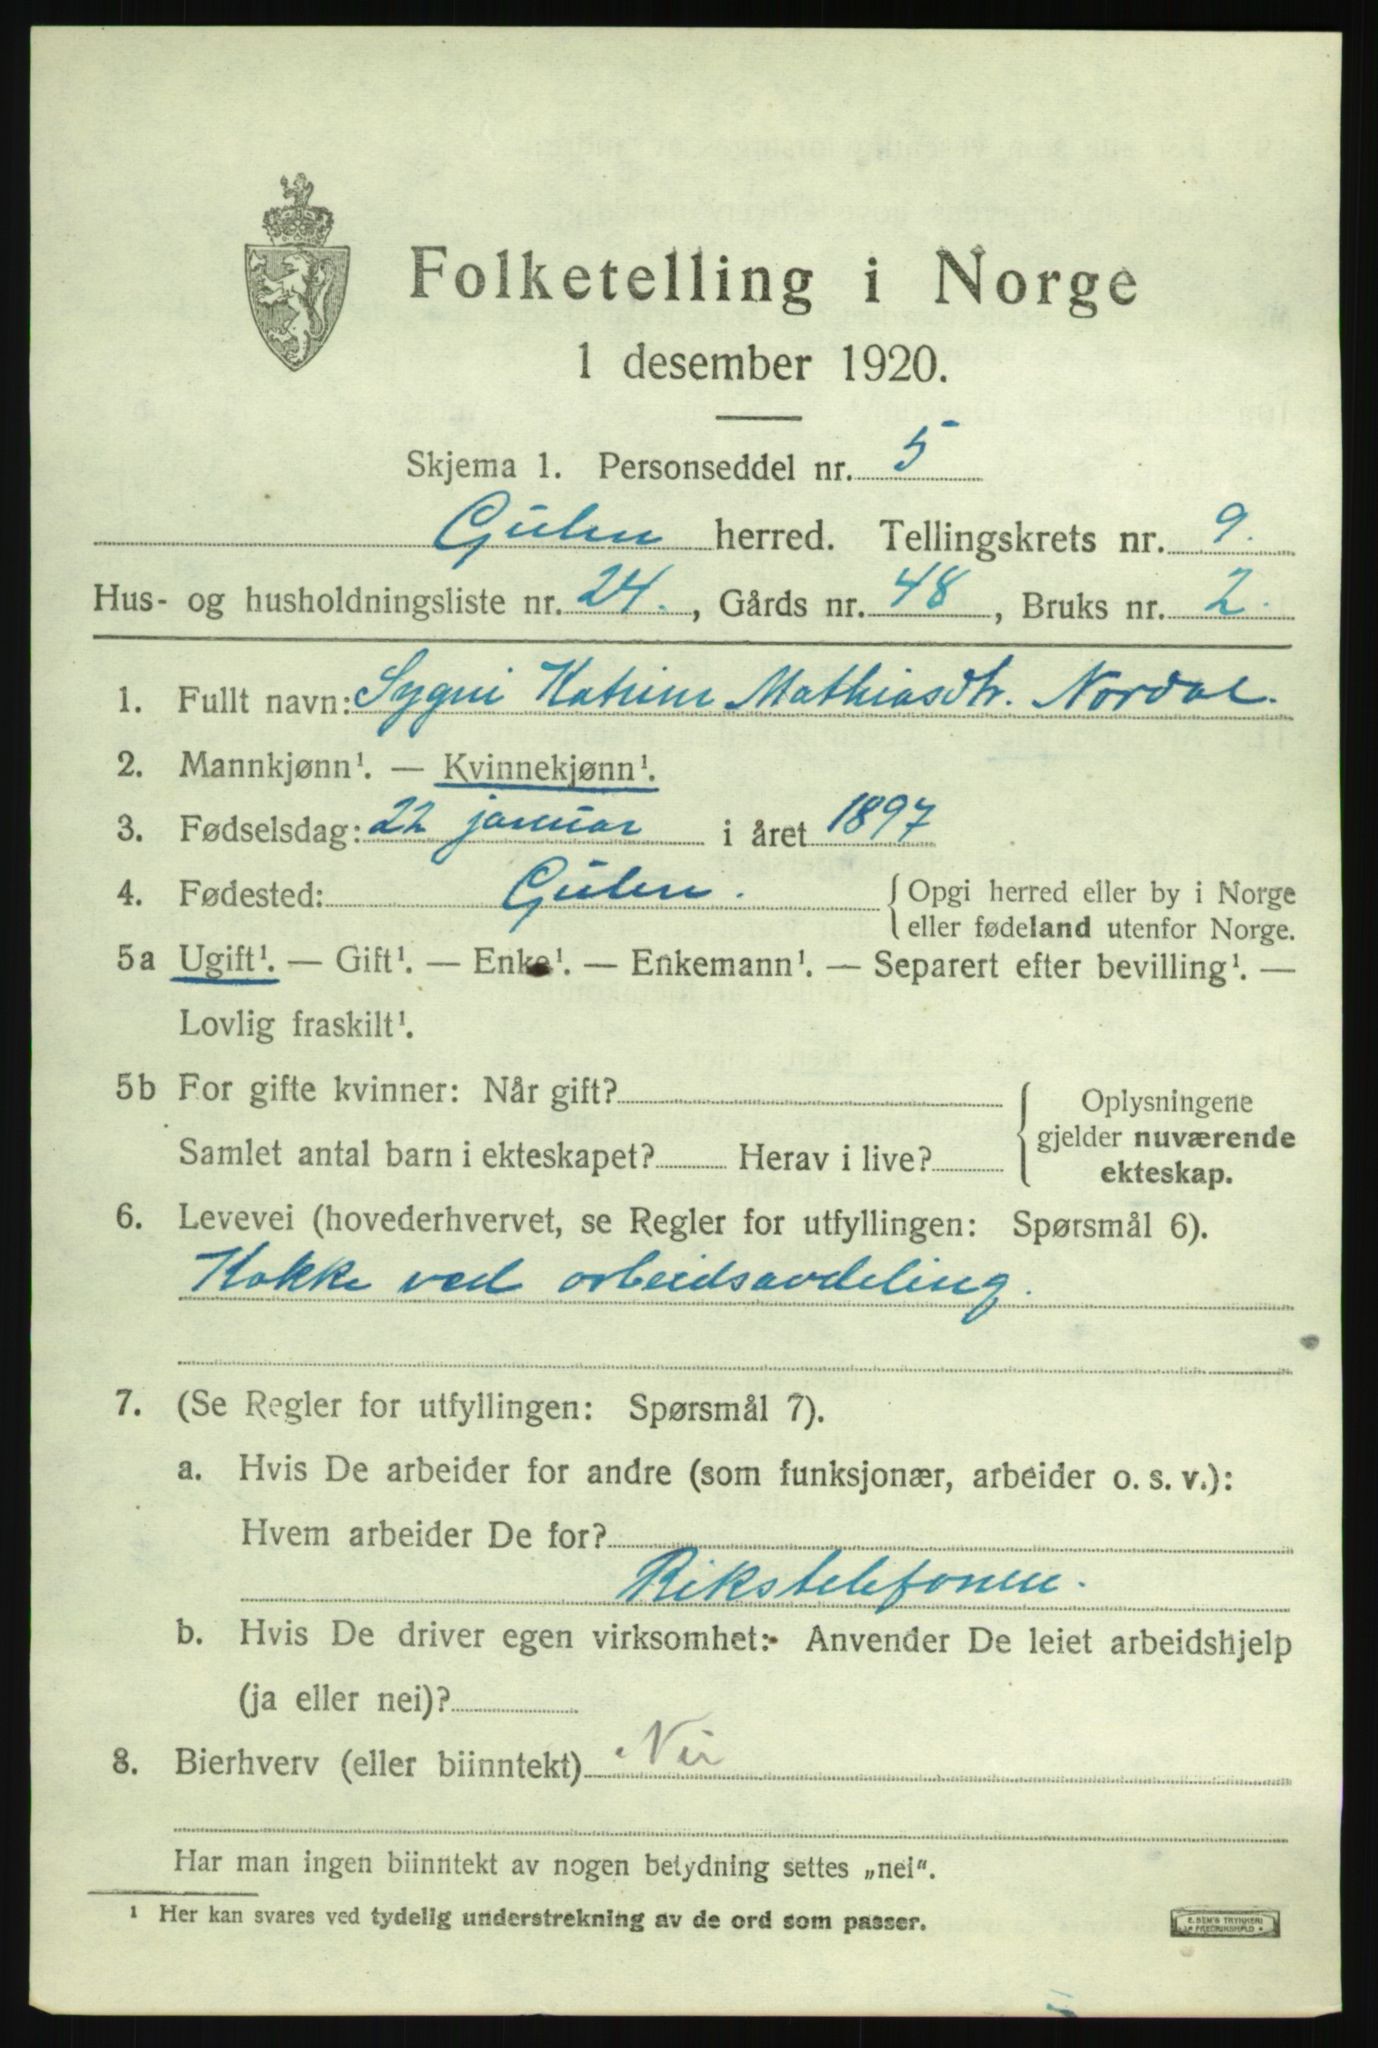 Folketelling i Norge
1 desember 1920.
Skjema 1. Personseddel nr. 5
Gulen herred. Tellingskrets nr. 9.
Hus- og husholdningsliste nr. 24., Gårds nr. 48, Bruks nr. 2.
1. Fullt navn: Sygni Katrine Mathiasdtr. Nordal.
2. Mannkjønn¹. — Kvinnekjønn¹.
3. Fødselsdag: 22 januar i året 1897
4. Fødested: Gulen. Opgi herred eller by i Norge
eller fødeland utenfor Norge.
5a Ugift¹. — Gift¹. — Enke¹. — Enkemann¹. — Separert efter bevilling¹. —
Lovlig fraskilt¹.
5b For gifte kvinner: Når gift? Oplysningene
gjelder nuværende
Samlet antal barn i ekteskapet? Herav i live? ekteskap.
6. Levevei (hovederhvervet, se Regler for utfyllingen: Spørsmål 6).
Kokke ved arbeidsavdeling.
7. (Se Regler for utfyllingen: Spørsmål 7).
a. Hvis De arbeider for andre (som funksjonær, arbeider o. s. v.):
Hvem arbeider De for?
Rikstelefonen.
b. Hvis De driver egen virksomhet: Anvender De leiet arbeidshjelp
(ja eller nei)?
8. Bierhverv (eller biinntekt) Nei
Har man ingen biinntekt av nogen betydning settes „nei“.
¹ Her kan svares ved tydelig understrekning av de ord som passer.
E. SEM'S TRYKKERI
FREDRIKSHALD